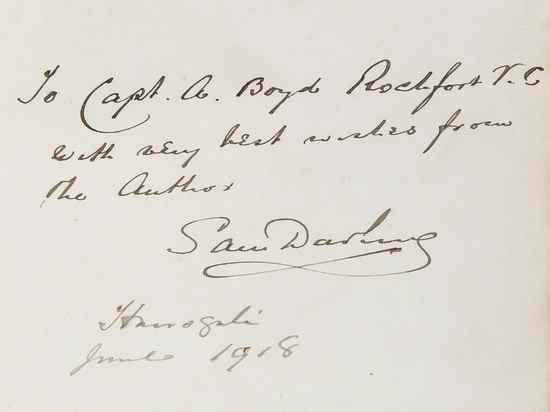 To Capt. A. Boyd Rochfort V.C
with very best wishes from
the Author
Sam Darling
Harrogate
June 1918